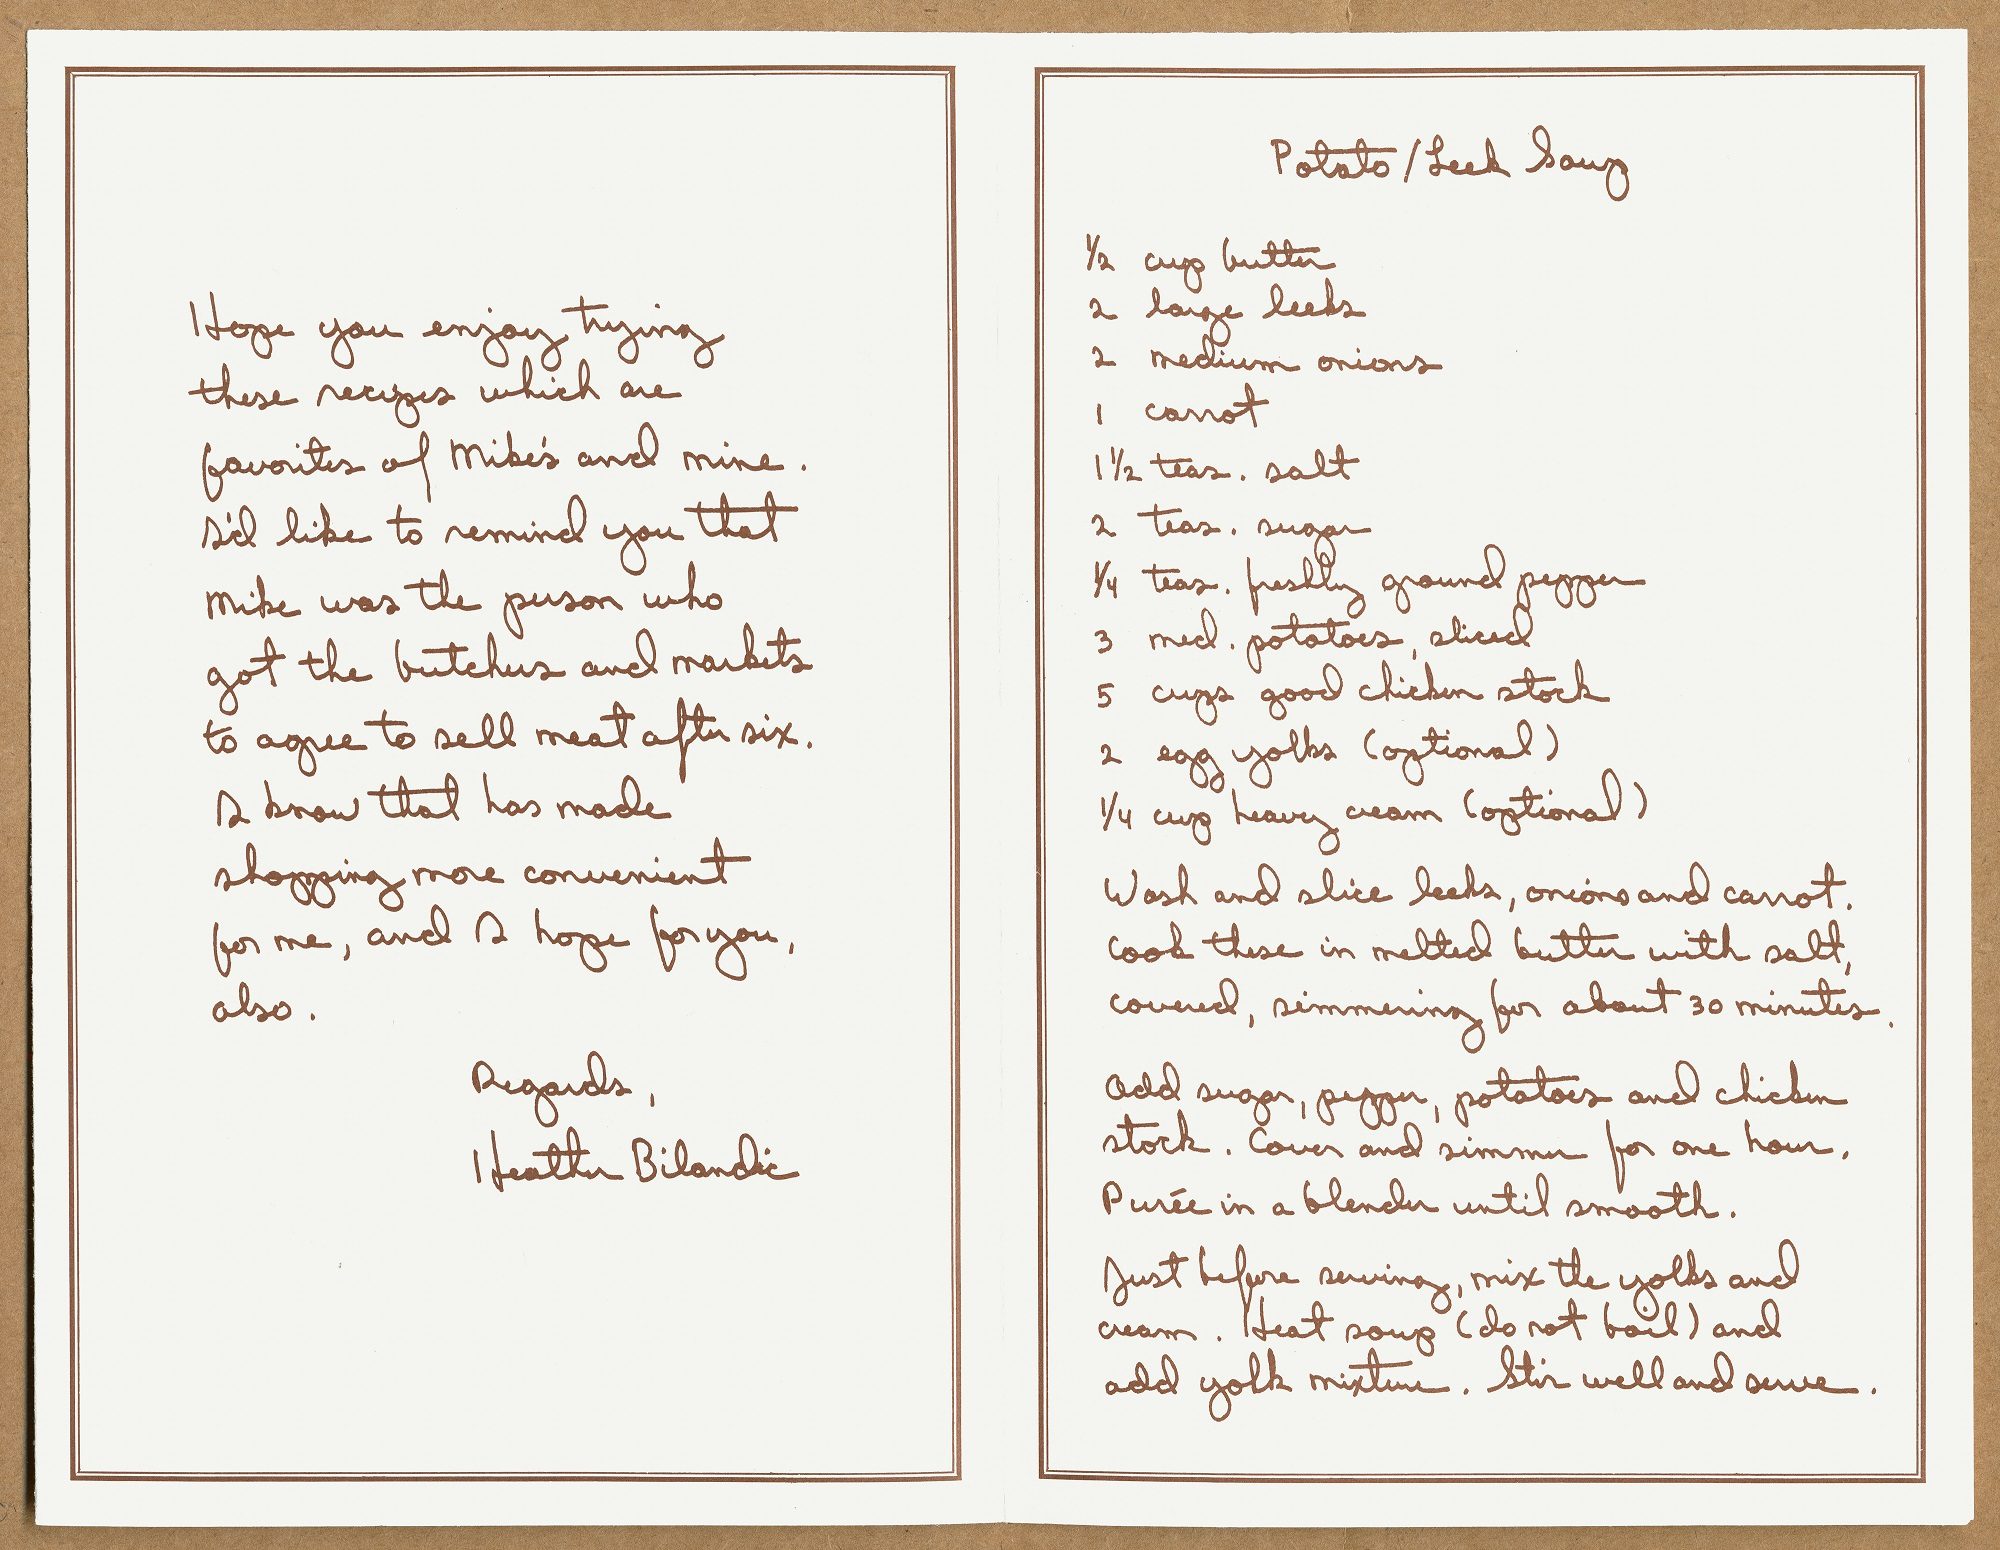 Hope you enjoy trying
these recipes which are
favorites of Mike's and mine.
I'd like to remind you that
Mike was the person who
got the butchers and markets
to agree to sell meat after six.
I know that has made
shopping more convenient
for me, and I hope for you,
also.
Regards,
Heather Bilandic
Potato/Leek Soup
1/2 cup butter
2 large leeks
2 medium onions
1 carrot
1 1/2 teas. salt
2 teas. sugar
1/4 teas. freshly ground pepper
3 med. potatoes, sliced
5 cups good chicken stock
2 egg yolks (optional)
1/4 cup heavy cream (optional)
Wash and slice leeks, onions and carrot.
Cook these in melted butter with salt,
covered, simmering for about 30 minutes.
Add sugar, pepper, potatoes and chicken
stock. Cover and simmer for one hour.
Purée in a blender until smooth.
Just before serving, mix the yolks and
cream. Heat soup (do not boil) and
add yolk mixture. Stir well and serve.